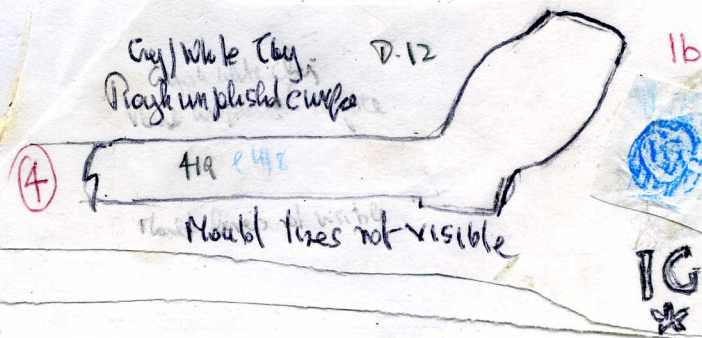 Grey/White Clay. D.12
Rough unpolished surface
1b
4
419
Mould lines not visible
IG